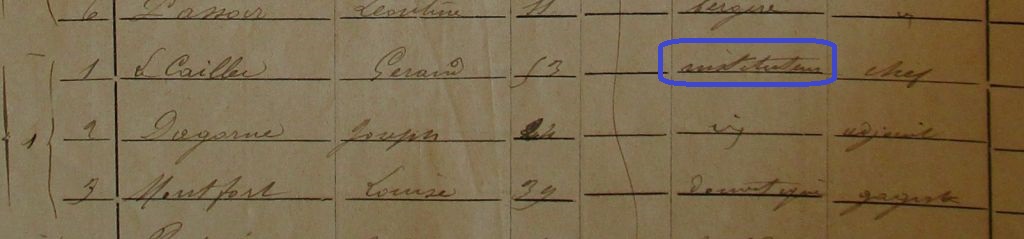 6 Leontine 11 bergère
1 Le Caillec Gérand 53 instituteur chef
1 2 Dagorne Joseph 24 id adjoint
3 Montfort Louise 39 domestique gagiste